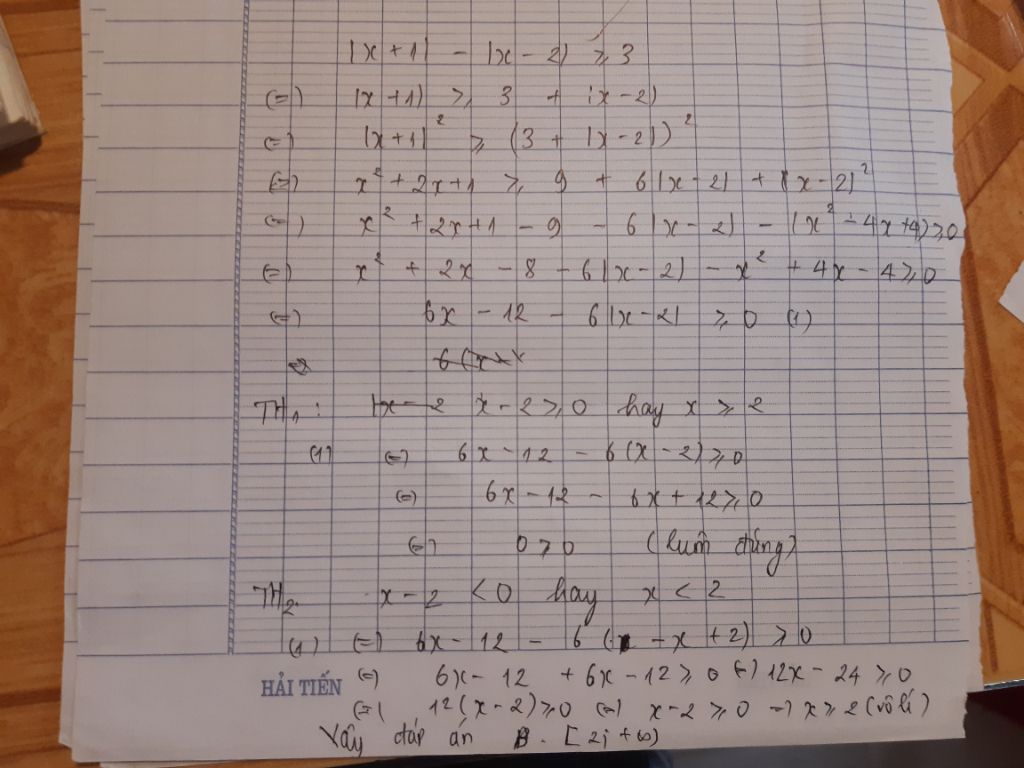 |x+1| - |x-2| ⩾ 3
(=) |x+1| ⩾ 3 + |x-2|
(=) |x+1|² ⩾ (3 + |x-2|)²
(=) x² + 2x+1 ⩾ 9 + 6|x-2| + (x-2)²
(=) x² + 2x+1 - 9 - 6|x-2| - (x² - 4x+4) ⩾ 0
(=) x² + 2x - 8 - 6|x-2| - x² + 4x - 4 ⩾ 0
(=) 6x - 12 - 6|x-2| ⩾ 0 (1)
TH₁: x-2 ⩾ 0 hay x ⩾ 2
(1) (=) 6x-12 - 6(x-2) ⩾ 0
(=) 6x-12 - 6x+12 ⩾ 0
(=) 0 ⩾ 0 (luôn đúng)
TH₂. x-2 < 0 hay x < 2
(1) (=) 6x-12 - 6(-x+2) ⩾ 0
HẢI TIẾN (=) 6x-12 + 6x-12 ⩾ 0 (=) 12x-24 ⩾ 0
(=) 12(x-2) ⩾ 0 (=) x-2 ⩾ 0 → x ⩾ 2 (vô lí)
Vậy đáp án B. [2; +∞)